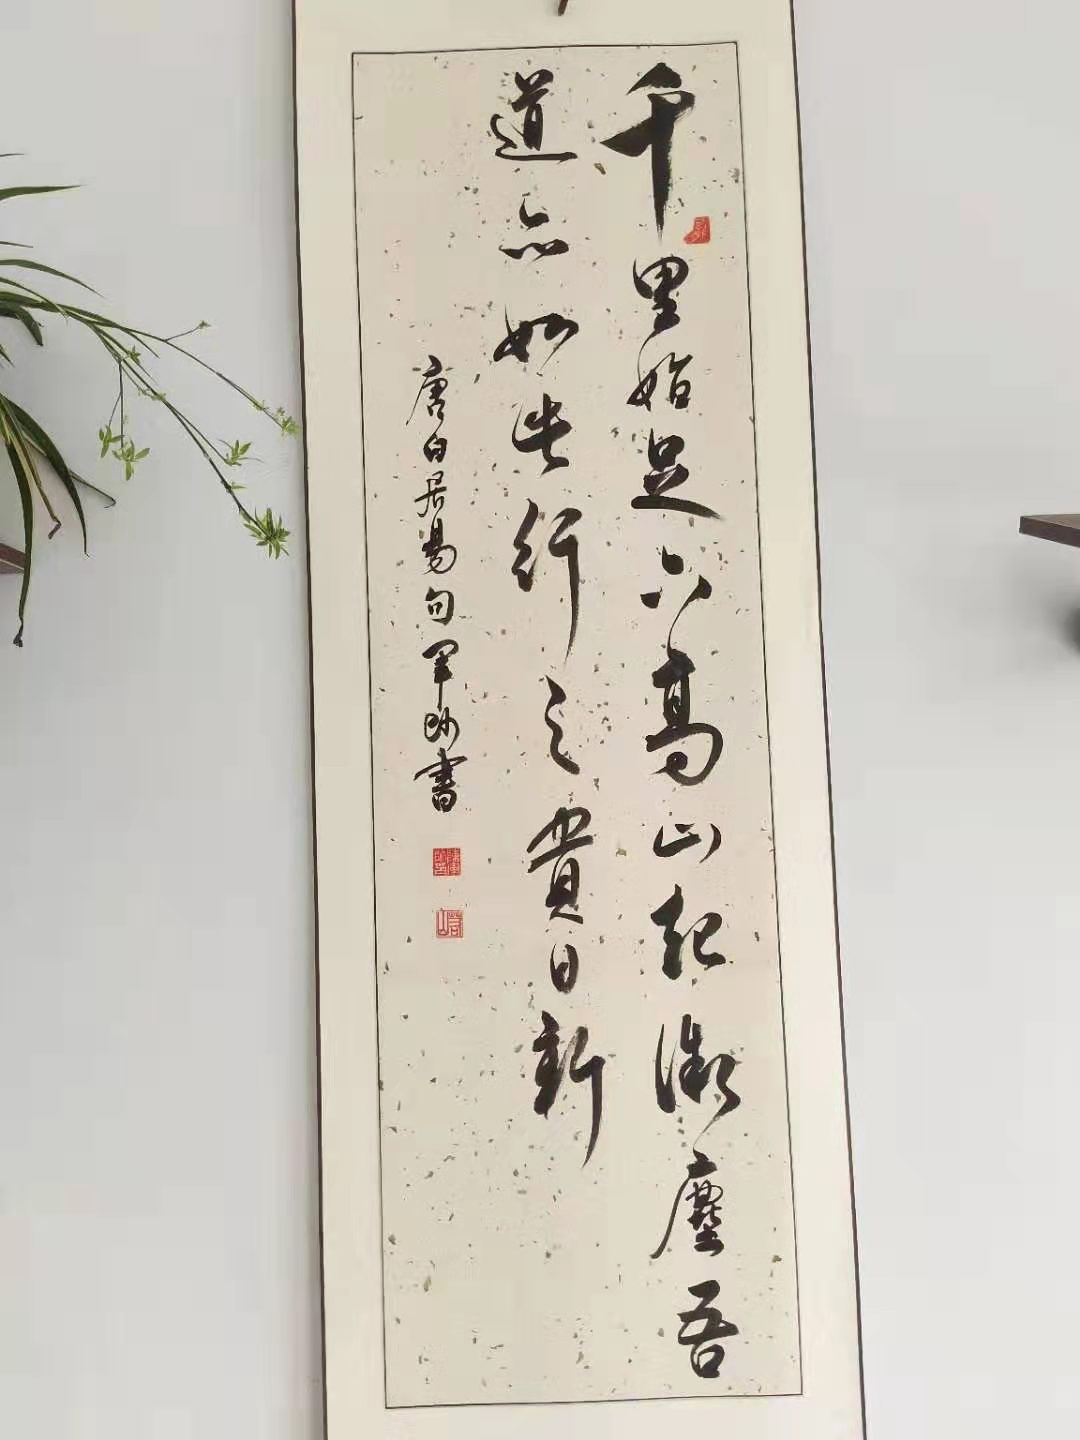 千里始足下高山起微塵吾
道亦如此行之貴日新
唐白居易句軍明書